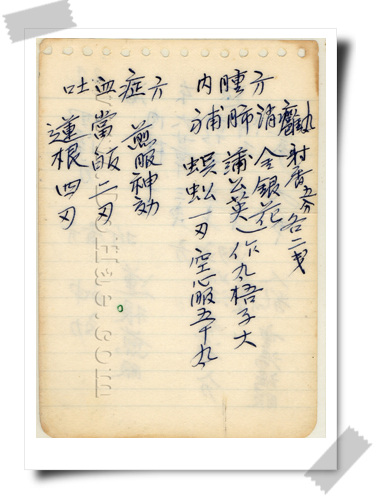 内腫方
補肺消癰
射香五分各二戋
金銀花
蒲公英 作丸梧子大
蜈蚣一刃 空心服五十丸
吐血症方
煎服神効
當皈二刃
蓮根四刃